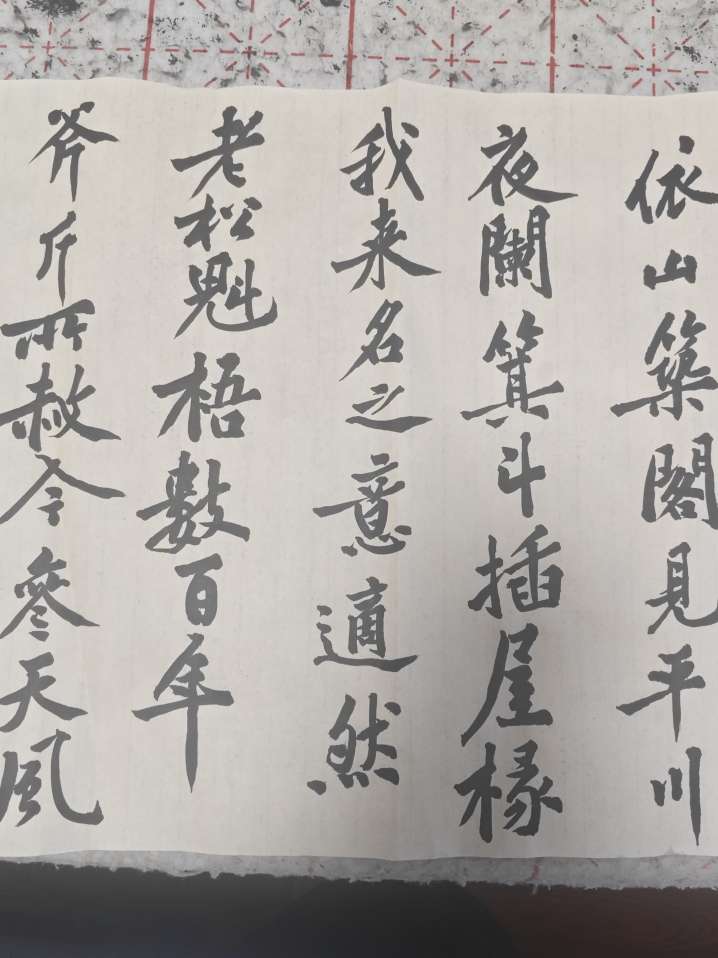 依山築閣見平川
夜闌箕斗插屋椽
我来名之意適然
老松魁梧數百年
斧斤所赦今參天風